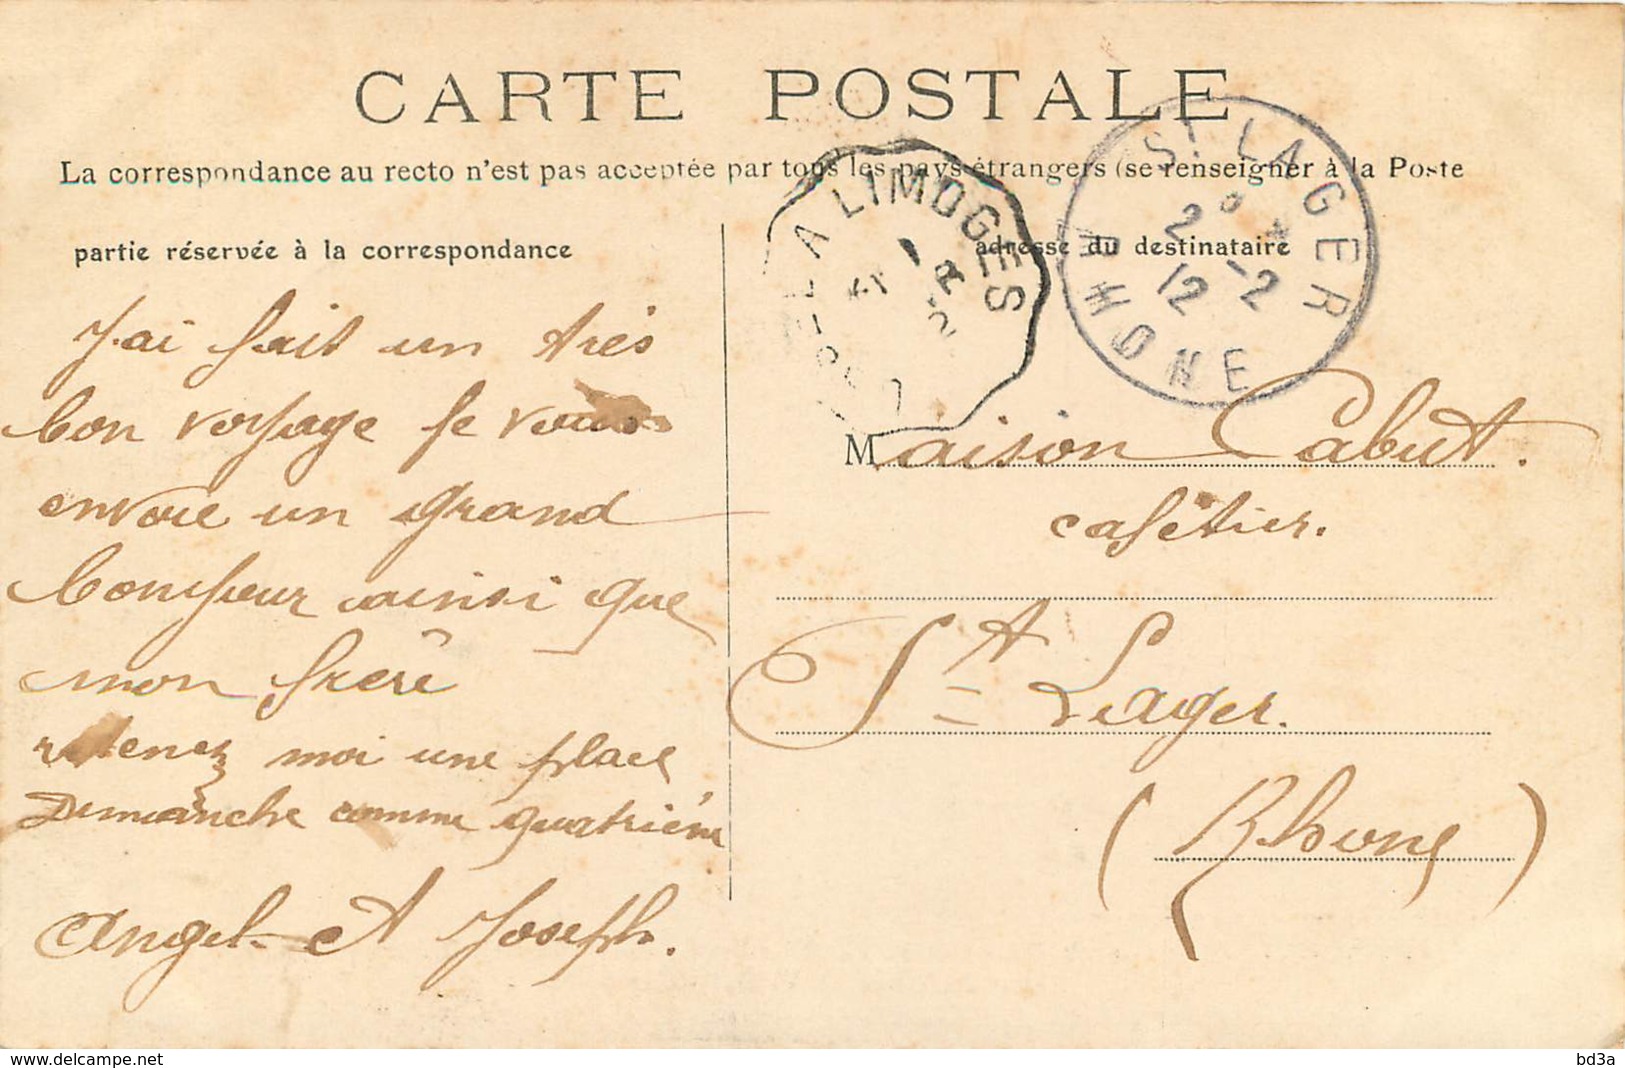 CARTE POSTALE
La correspondance au recto n'est pas acceptée par tous les pays étrangers (se renseigner à la Poste
partie réservée à la correspondance
adresse du destinataire
LA LIMOGES
ST LAGER
2 *
12 -2
RHONE
J'ai fait un très
bon voyage je vous
envoie un grand
bonjour ainsi que
mon frère
retenez moi une place
Dimanche comme quatrième
Angel et Joseph.
Maison Cabut.
cafetier.
St Lager.
(Rhone)
www.delcampe.net
bd3a